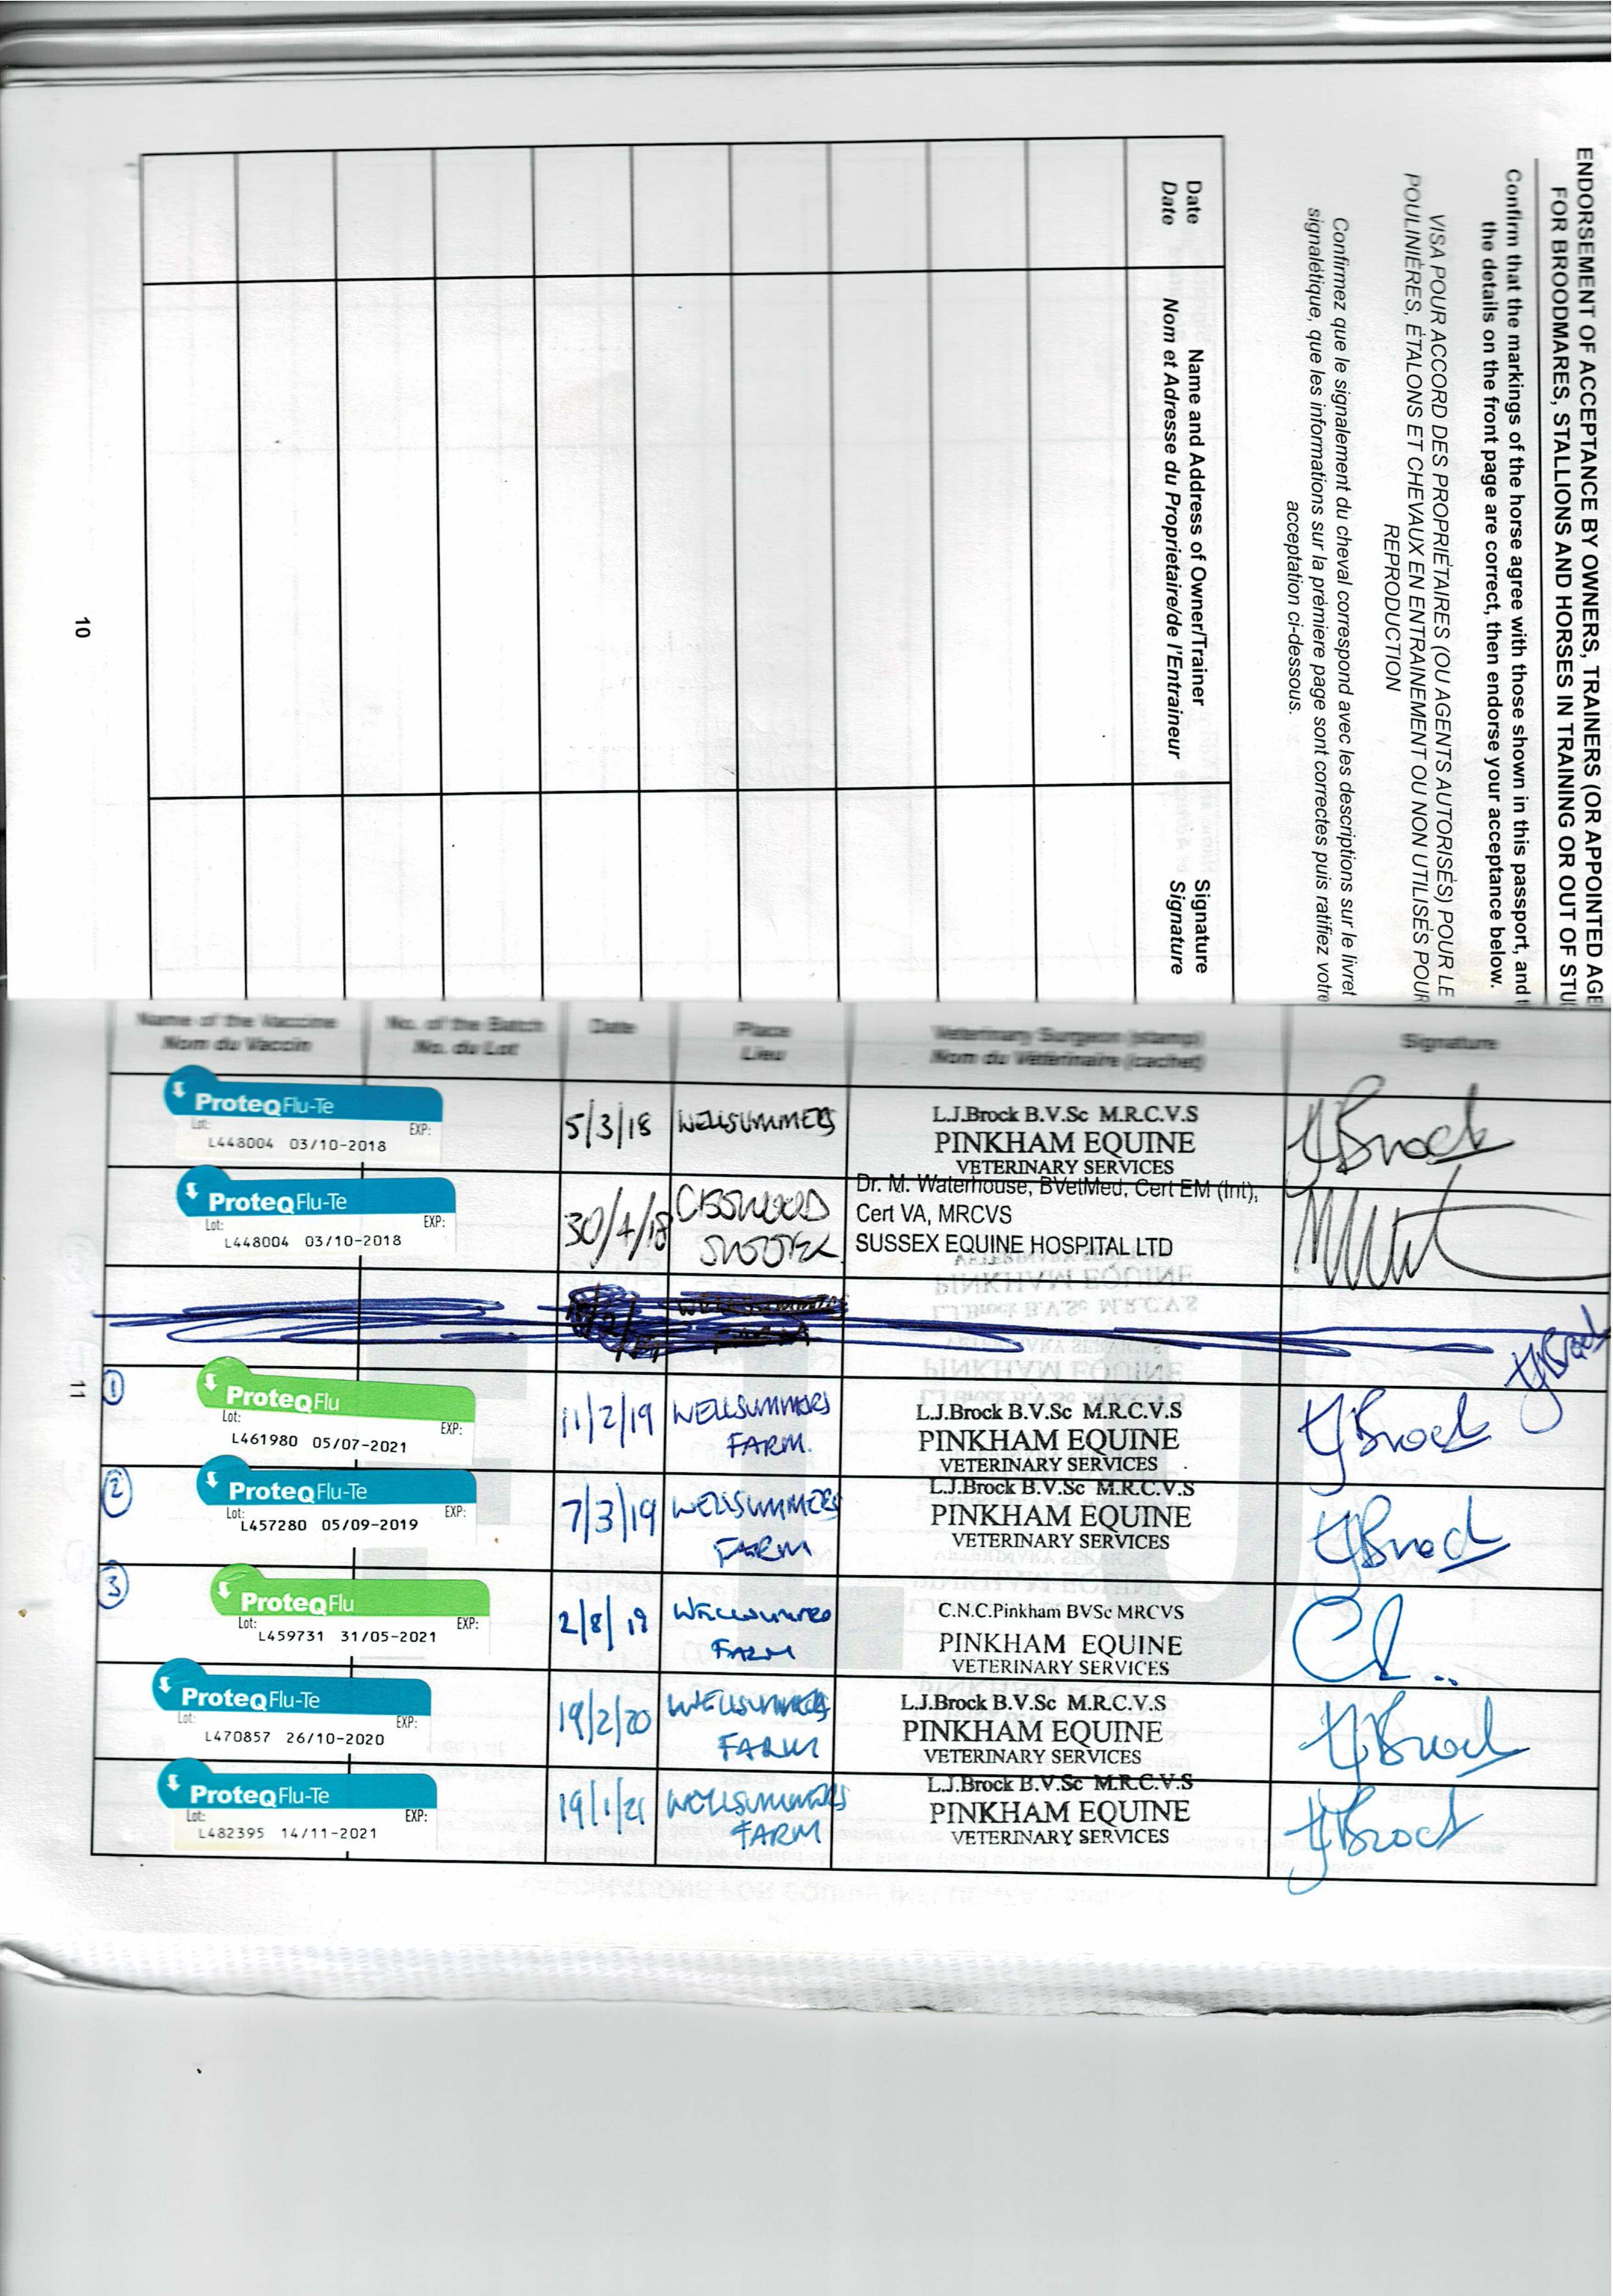 ENDORSEMENT OF ACCEPTANCE BY OWNERS, TRAINERS (OR APPOINTED AGE
FOR BROODMARES, STALLIONS AND HORSES IN TRAINING OR OUT OF STU
Confirm that the markings of the horse agree with those shown in this passport, and t
the details on the front page are correct, then endorse your acceptance below.
VISA POUR ACCORD DES PROPRIÉTAIRES (OU AGENTS AUTORISÉS) POUR LE
POULINIÈRES, ÉTALONS ET CHEVAUX EN ENTRAINEMENT OU NON UTILISÉS POUR
REPRODUCTION
Confirmez que le signalement du cheval correspond avec les descriptions sur le livret
signalétique, que les informations sur la première page sont correctes puis ratifiez votre
acceptation ci-dessous.
Date
Date
Name and Address of Owner/Trainer
Nom et Adresse du Proprietaire/de l'Entraineur
Signature
Signature
10
Name of the Vaccine
Nom du Vaccin
No. of the Batch
No. du Lot
Date
Place
Lieu
Veterinary Surgeon (stamp)
Nom du Vétérinaire (cachet)
Signature
ProteqFlu-Te
Lot: EXP:
L448004 03/10-2018
5/3/18
WELLSUMMERS
L.J.Brock B.V.Sc M.R.C.V.S
PINKHAM EQUINE
VETERINARY SERVICES
LJBrock
ProteqFlu-Te
Lot: EXP:
L448004 03/10-2018
30/4/18
Dr. M. Waterhouse, BVetMed, Cert EM (Int),
Cert VA, MRCVS
SUSSEX EQUINE HOSPITAL LTD
LJBrock
11
1
ProteqFlu
Lot: EXP:
L461980 05/07-2021
11/2/19
WELLSUMMERS
FARM.
L.J.Brock B.V.Sc M.R.C.V.S
PINKHAM EQUINE
VETERINARY SERVICES
LJBrock
2
ProteqFlu-Te
Lot: EXP:
L457280 05/09-2019
7/3/19
WELLSUMMERS
FARM
L.J.Brock B.V.Sc M.R.C.V.S
PINKHAM EQUINE
VETERINARY SERVICES
LJBrock
3
ProteqFlu
Lot: EXP:
L459731 31/05-2021
2/8/19
WELLSUMMERS
FARM
C.N.C.Pinkham BVSc MRCVS
PINKHAM EQUINE
VETERINARY SERVICES
ProteqFlu-Te
Lot: EXP:
L470857 26/10-2020
19/2/20
WELLSUMMERS
FARM
L.J.Brock B.V.Sc M.R.C.V.S
PINKHAM EQUINE
VETERINARY SERVICES
LJBrock
ProteqFlu-Te
Lot: EXP:
L482395 14/11-2021
19/1/21
WELLSUMMERS
FARM
L.J.Brock B.V.Sc M.R.C.V.S
PINKHAM EQUINE
VETERINARY SERVICES
LJBrock